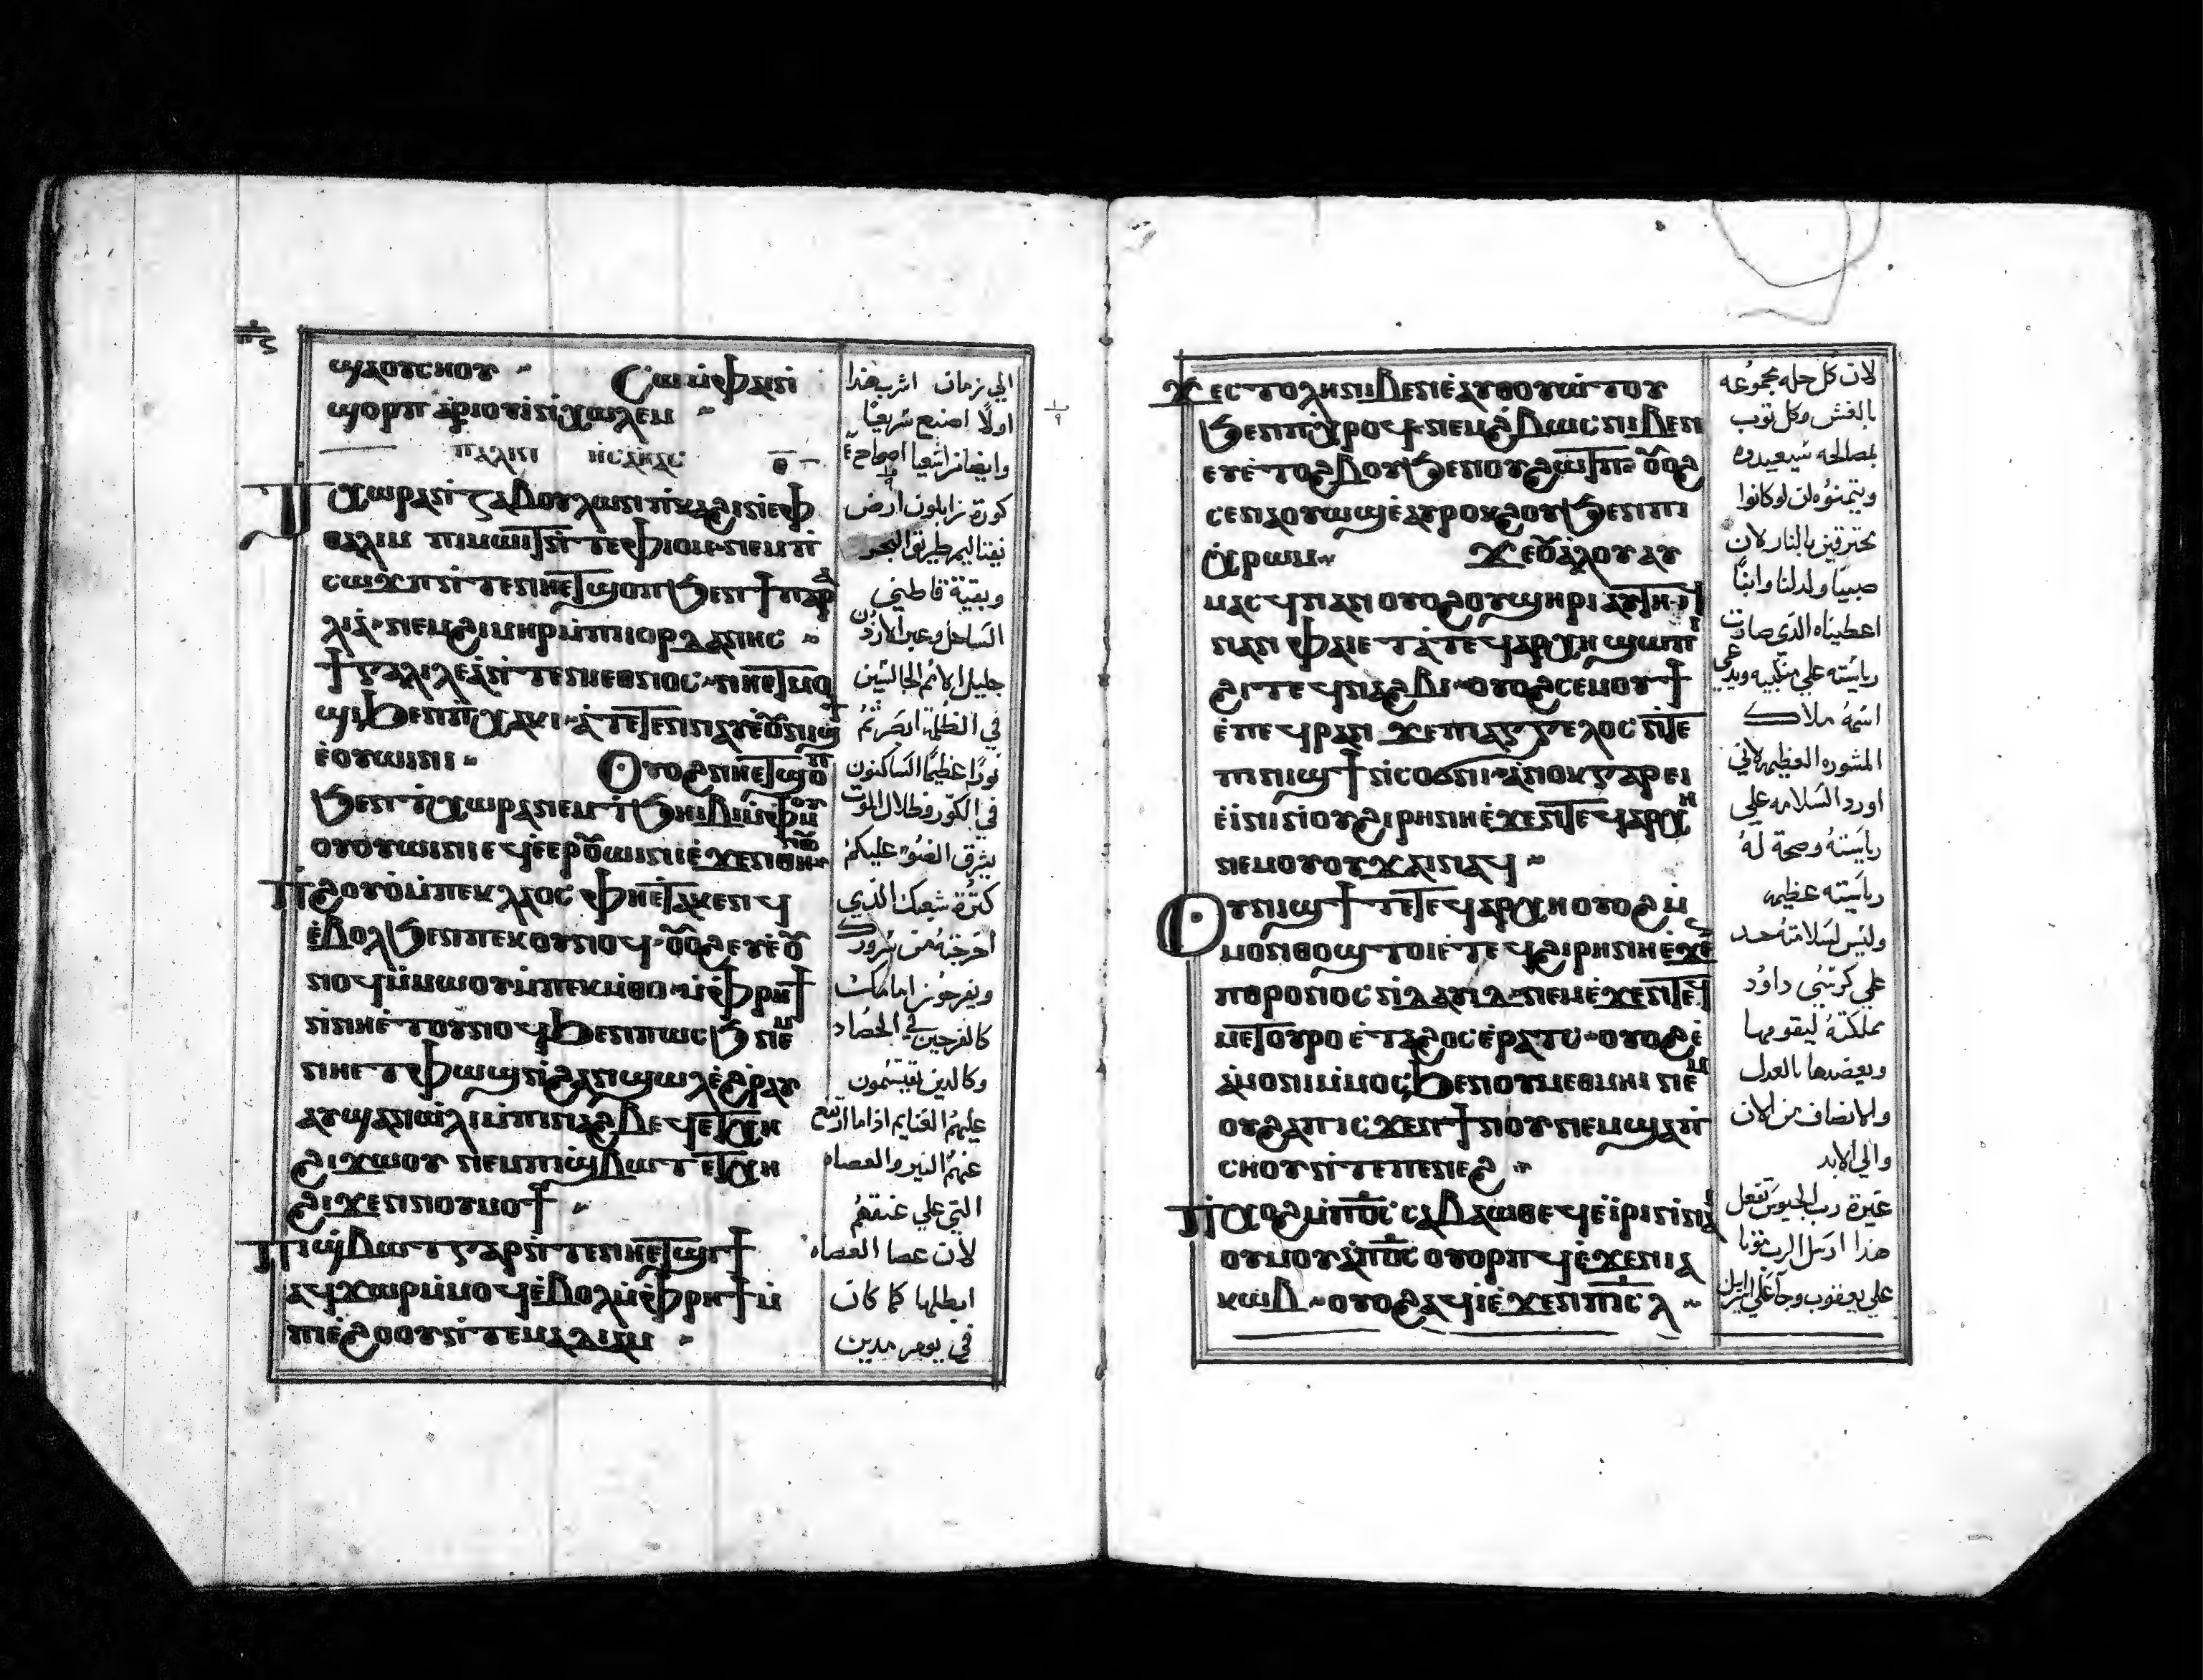 ϣⲁⲟⲩⲥⲏⲟⲩ Ⲥⲱ ⲙ̀ⲫⲁⲓ
ⲛ̀ϣⲟⲣⲡ ⲁ̀ⲣⲓⲟⲩⲓ̀ ⲛ̀ⲭⲱⲗⲉⲙ
ⲡⲁⲗⲓⲛ ⲏⲥⲁⲏⲁⲥ ⲑ
Ⲧⲭⲱⲣⲁ ⲛ̀ⲍⲁⲃⲟⲩⲗⲱⲛ ⲡⲕⲁϩⲓ ⲛ̀ⲉⲫ
ⲑⲁⲗⲓⲙ ⲡⲓⲙⲱⲓⲧ ⲛ̀ⲧⲉ ⲫⲓⲟⲙ ⲛⲉⲙ ⲡ
ⲥⲱϫⲡ ⲛ̀ⲧⲉ ⲛⲏⲉⲧϣⲟⲡ ϧⲉⲛ ϯⲡⲁⲣⲁ
ⲗⲓⲁ ⲛⲉⲙ ϩⲓⲙⲏⲣ ⲙ̀ⲡⲓⲓⲟⲣⲇⲁⲛⲏⲥ
ϯⲅⲁⲗⲓⲗⲉⲁ̀ ⲛ̀ⲧⲉ ⲛⲓⲉⲑⲛⲟⲥ ⲛⲏⲉⲧⲙⲟ
ϣⲓ ϧⲉⲛ ⲡⲭⲁⲕⲓ ⲁ̀ⲧⲉⲧⲉⲛⲛⲁⲩ ⲉ̀ⲟⲩⲛⲓϣϯ
ⲉ̀ⲟⲩⲱⲓⲛⲓ Ⲟⲩⲟϩ ⲛⲏⲉⲧϣⲟⲡ
ϧⲉⲛ ⲧ̀ⲭⲱⲣⲁ ⲛⲉⲙ ⲧ̀ϧⲏⲓⲃⲓ ⲙ̀ⲫⲙⲟⲩ
ⲟⲩⲟⲩⲱⲓⲛⲓ ⲉϥⲉ̀ⲉⲣⲟⲩⲱⲓⲛⲓ ⲉ̀ϫⲉⲛ ⲑⲏⲛⲟⲩ
Ⲡϩⲟⲩⲟ̀ ⲙ̀ⲡⲉⲕⲗⲁⲟⲥ ⲫⲏⲉⲧⲁⲕⲉⲛϥ
ⲉ̀ⲃⲟⲗ ϧⲉⲛ ⲡⲉⲕⲟⲩⲛⲟϥ ⲟⲩⲟϩ ⲉⲩⲉ̀ⲟⲩ
ⲛⲟϥ ⲙ̀ⲙⲱⲟⲩ ⲙ̀ⲡⲉⲕⲙ̀ⲑⲟ ⲙ̀ⲫⲣⲏϯ
ⲛ̀ⲛⲏⲉ̀ⲧⲟⲩⲛⲟϥ ϧⲉⲛ ⲡⲱⲥϧ ⲛⲉⲙ
ⲛⲏⲉⲧⲫⲱϣ ⲛ̀ϩⲁⲛϣⲱⲗ ⲉ̀ϩⲣⲁⲩ
ⲁⲩϣⲁⲛⲱ̀ⲗⲓ ⲙ̀ⲡⲓⲛⲁϩⲃⲉϥ ⲉⲧⲭⲏ
ϩⲓϫⲱⲟⲩ ⲛⲉⲙ ⲡⲓϣ̀ⲃⲱⲧ ⲉⲧⲭⲏ
ϩⲓϫⲉⲛ ⲛⲟⲩⲙⲟϯ
Ⲡⲓϣ̀ⲃⲱⲧ ⲅⲁⲣ ⲛ̀ⲧⲉ ⲛⲏⲉⲧϣⲓϯ
ⲁϥϫⲱⲣ ⲙ̀ⲙⲟϥ ⲉ̀ⲃⲟⲗ ⲙ̀ⲫⲣⲏϯ ⲙ̀
ⲡⲓⲉ̀ϩⲟⲟⲩ ⲛ̀ⲧⲉ ⲙⲁⲇⲓⲁⲙ
الي زمان اشرب هذا
اولًا اصنع سريعًا
وايضا من اشعيا اصحاح ٩
كورة زابلون ارض
نفتاليم طريق البحر
وبقية قاطني
الساحل وعبر الاردن
جليل الامم الجالسين
في الظلمة ابصرتم
نورًا عظيمًا الساكنون
في الكور وظلال الموت
يشرق الضوء عليكم
كثرة شعبك الذي
اخرجته من سرورك
ويفرحون امامك
كالفرحين في الحصاد
وكالذين يقتسمون
عليهم الغنايم اذا ما ارتفع
عنهم النير والعصاه
التي علي عنقهم
لان عصا العصاه
ابطلها كما كان
في يوم مدين
Ϫⲉ ⲥⲧⲟⲗⲏ ⲛⲓⲃⲉⲛ ⲉ̀ⲁⲩⲑⲟⲩⲱⲧⲟⲩ
ϧⲉⲛ ⲡⲭⲣⲟϥ ⲛⲉⲙ ϩⲃⲱⲥ ⲛⲓⲃⲉⲛ
ⲉⲩⲉ̀ⲧⲟϩⲃⲟⲩ ϧⲉⲛ ⲟⲩϩⲱⲧⲡ ⲟⲩⲟϩ
ⲥⲉⲛⲁⲟⲩⲱϣ ⲉ̀ⲁⲩⲣⲟⲕϩⲟⲩ ϧⲉⲛ ⲡⲓ
ⲭⲣⲱⲙ Ϫⲉ ⲟⲩⲁ̀ⲗⲟⲩ ⲁⲩ
ⲙⲁⲥϥ ⲛⲁⲛ ⲟⲩⲟϩ ⲟⲩϣⲏⲣⲓ ⲁⲩⲧⲏⲓϥ
ⲛⲁⲛ ⲫⲁⲓ ⲉ̀ⲧⲁ ⲧⲉϥⲁⲣⲭⲏ ϣⲱⲡⲓ
ϩⲓ ⲧⲉϥⲛⲁϩⲃⲓ ⲟⲩⲟϩ ⲥⲉⲙⲟⲩϯ
ⲉ̀ⲡⲉϥⲣⲁⲛ ϫⲉ ⲡⲓⲁⲅⲅⲉⲗⲟⲥ ⲛ̀ⲧⲉ
ⲡⲓⲛⲓϣϯ ⲛ̀ⲥⲟϭⲛⲓ ⲁ̀ⲛⲟⲕ ⲅⲁⲣ ⲉⲓ
ⲉ̀ⲓ̀ⲛⲓ ⲛ̀ⲟⲩϩⲓⲣⲏⲛⲏ ⲉ̀ϫⲉⲛ ⲧⲉϥⲁⲣⲭⲏ
ⲛⲉⲙ ⲟⲩⲟⲩϫⲁⲓ ⲛⲁϥ
Ⲟⲩⲛⲓϣϯ ⲧⲉ ⲧⲉϥⲁⲣⲭⲏ ⲟⲩⲟϩ ⲙ̀
ⲙⲟⲛ ⲑⲱϣ ⲧⲟⲓ ⲉ̀ⲧⲉϥϩⲓⲣⲏⲛⲏ ⲉ̀ϫⲉⲛ
ⲡⲑⲣⲟⲛⲟⲥ ⲛ̀ⲇⲁⲩⲓⲇ ⲛⲉⲙ ⲉ̀ϫⲉⲛ ⲧⲉϥ
ⲙⲉⲧⲟⲩⲣⲟ ⲉ̀ⲧⲁϩⲟⲥ ⲉ̀ⲣⲁⲧⲥ ⲟⲩⲟϩ ⲉ̀
ⲁ̀ⲙⲟⲛⲓ ⲙ̀ⲙⲟⲥ ϧⲉⲛ ⲟⲩⲙⲉⲑⲙⲏⲓ ⲛⲉⲙ
ⲟⲩϩⲁⲡ ⲓⲥϫⲉⲛ ϯⲛⲟⲩ ⲛⲉⲙ ϣⲁ ⲡ
ⲥⲏⲟⲩ ⲛ̀ⲧⲉ ⲡⲉⲛⲉϩ
Ⲡⲭⲟϩ ⲙ̀ⲡⲟ̅ⲥ̅ ⲥⲁⲃⲁⲱⲑ ⲉϥⲉ̀ⲓⲣⲓ ⲛ̀ⲛⲁⲓ
ⲟⲩⲙⲟⲩ ⲁ̀ⲡⲟ̅ⲥ̅ ⲟⲩⲟⲣⲡϥ ⲉ̀ϫⲉⲛ ⲓⲁ
ⲕⲱⲃ ⲟⲩⲟϩ ⲁϥⲓ̀ ⲉ̀ϫⲉⲛ ⲡⲓⲥ̅ⲗ̅
لان كل حله مجموعه
بالغش وكل ثوب
بمصالحه سيعيدوه
ويتمنوه ان لو كانوا
محترقين بالنار لان
صبيًا ولد لنا وابنًا
اعطيناه الذي صارت
رياسته علي منكبيه ويدعي
اسمه ملاك
المشوره العظيمه لاني
اورد السلامه علي
رياسته وصحة له
رياسته عظيمه
وليس لسلامته حد
علي كرسي داود
مملكته ليقومها
ويعضدها بالعدل
والانصاف من الان
والي الابد
غيرة رب الجيوش تفعل
هذا ارسل الرب موتا
علي يعقوب وجا علي اسراييل